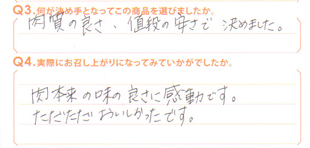 Q3.何が決め手となってこの商品を選びましたか。
肉質の良さ、値段の安さで 決めました。
Q4.実際にお召し上がりになってみていかがでしたか。
肉本来の味の良さに感動です。
ただただおいしかったです。